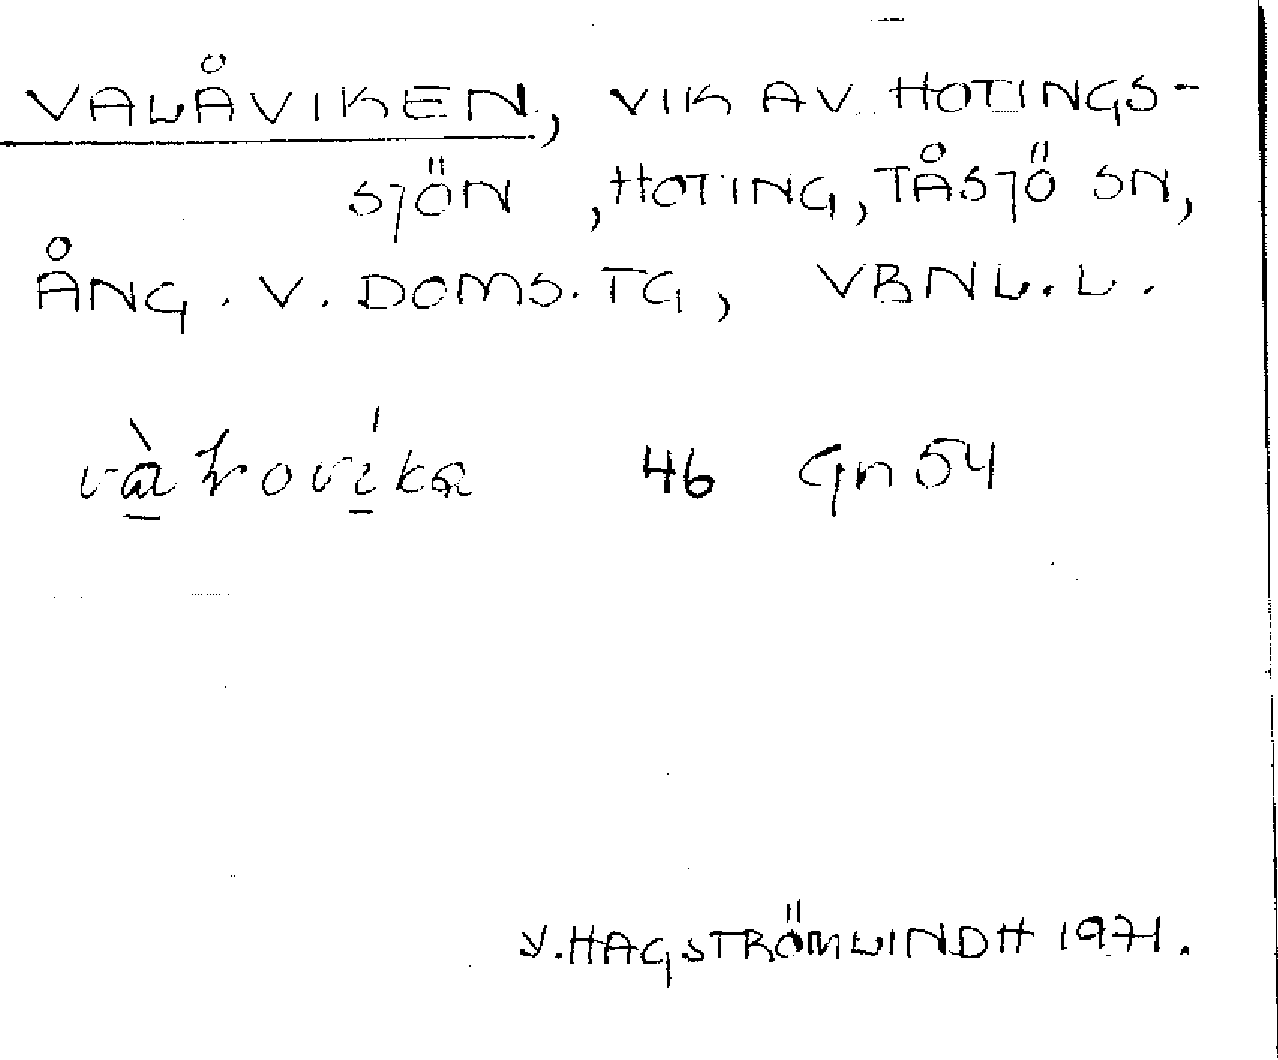 VALÅVIKEN, VIK AV HOTINGS-
SJÖN, HOTING, TÅSJÖ SN,
ÅNG. V. DOMS. TG, VBNL.L.
46 Gn 54
Y. HAGSTRÖM LINDH 1971.